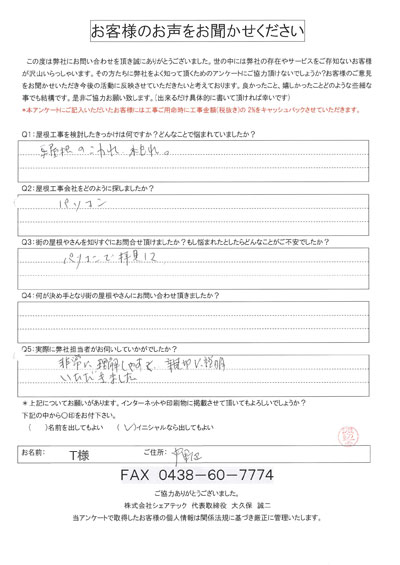 お客様のお声をお聞かせください
この度は弊社にお問い合わせを頂き誠にありがとうございました。世の中には弊社の存在やサービスをご存知ないお客様
が沢山いらっしゃいます。その方たちに弊社をよく知って頂くためのアンケートにご協力頂けないでしょうか?お客様のご意見
をお聞かせいただき今後の活動に反映させていただきたいと考えております。良かったこと、嬉しかったことどのような些細な
事でも結構です。是非ご協力お願い致します。(出来るだけ具体的に書いて頂ければ幸いです)
*本アンケートにご記入いただいたお客様には工事ご用命時に工事金額(税抜き)の 2%をキャッシュバックさせていただきます。
Q1:屋根工事を検討したきっかけは何ですか?どんなことで悩まれていましたか?
屋根のこわれ
Q2:屋根工事会社をどのように探しましたか?
パソコン
Q3:街の屋根やさんを知りすぐにお問合せ頂けましたか?もし悩まれたとしたらどんなことがご不安でしたか?
パソコンで拝見して
Q4:何が決め手となり街の屋根やさんにお問い合わせ頂きましたか?
Q5:実際に弊社担当者がお伺いしていかがでしたか?
非常に理解しやすく、親切に説明
いただきました
*上記についてお願いがあります。インターネットや印刷物に掲載させて頂いてもよろしいでしょうか?
下記の中から〇印をお付下さい。
( )名前を出してもよい (✓)イニシャルなら出してもよい
お名前: T様 ご住所: 中野区
FAX 0438-60-7774
ご協力ありがとうございました。
株式会社シェアテック 代表取締役 大久保 誠二
当アンケートで取得したお客様の個人情報は関係法規に基づき厳正に管理いたします。